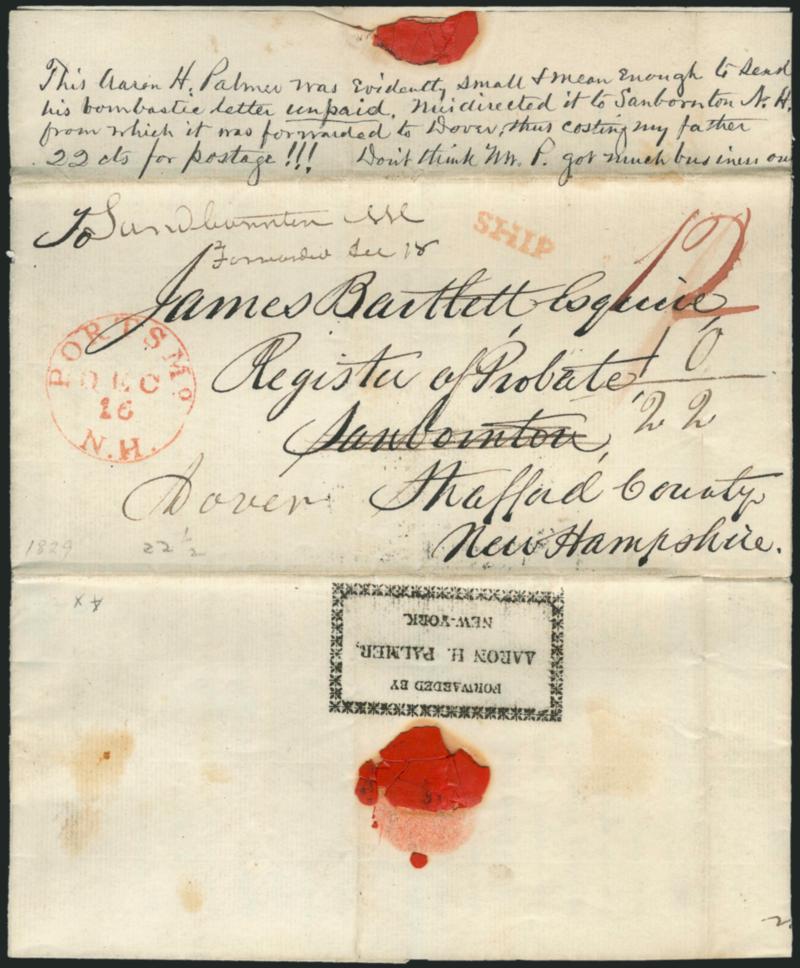 This Aaron H. Palmer was Evidently small & mean Enough to send
his bombastic letter unpaid. Misdirected it to Sanbornton N. H.
from which it was forwarded to Dover, thus costing my father
22 cts for postage!!! Don't think Mr. P. got much business out
To Sandbornton
Forwarded Dec 18
SHIP
12
James Bartlett, Esquire,
PORTSMO.
DEC
16
N.H.
Register of Probate,
10
22
Sanbornton,
Dover Strafford County
New Hampshire.
1829 22 1/2
X
FORWARDED BY
AARON H. PALMER,
NEW-YORK.
2